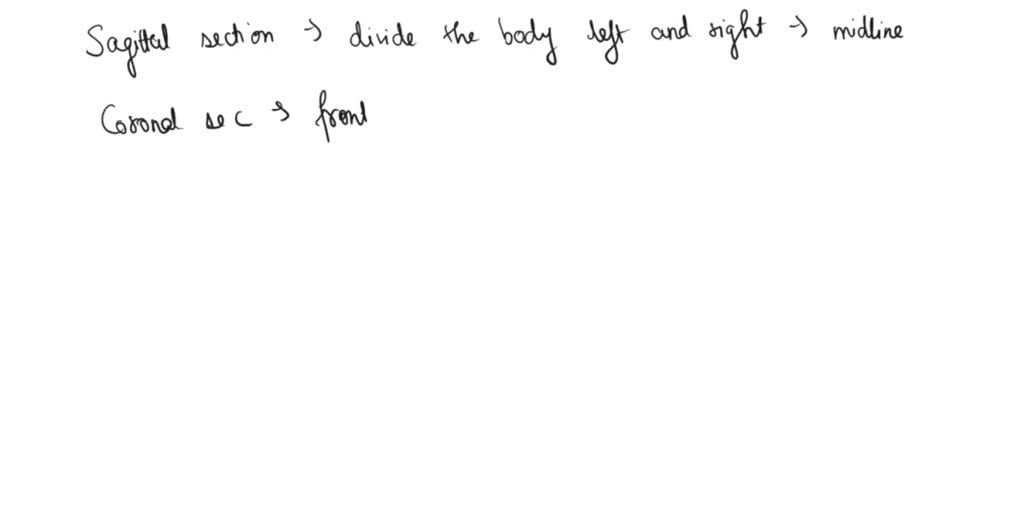 Sagittal section → divide the body left and right → midline
Coronal sec → front